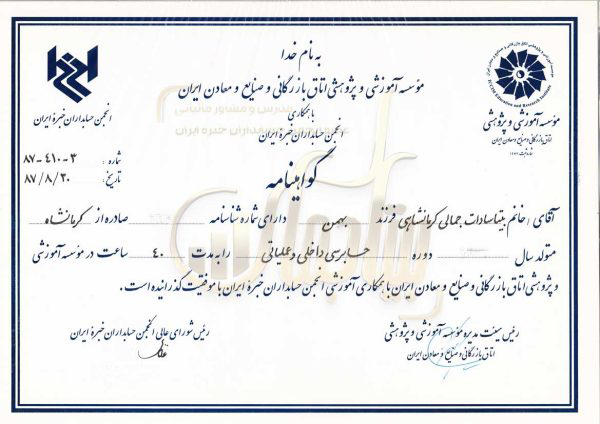 به نام خدا
مؤسسه آموزشی و پژوهشی اتاق بازرگانی و صنایع و معادن ایران
با همکاری
انجمن حسابداران خبرهٔ ایران
انجمن حسابداران خبرهٔ ایران
مؤسسه آموزشی و پژوهشی
اتاق بازرگانی و صنایع و معادن ایران
شماره : ۸۷-۴۱۰-۳
تاریخ: ۸۷/۸/۲۰
گواهینامه
آقای / خانم بیتا سادات جمالی کرمانشاهی فرزند بهمن دارای شماره شناسنامه صادره از کرمانشاه
متولد سال دوره حسابرسی داخلی و عملیاتی را به مدت ۴۰ ساعت در مؤسسه آموزشی
و پژوهشی اتاق بازرگانی و صنایع و معادن ایران با همکاری آموزشی انجمن حسابداران خبرهٔ ایران با موفقیت گذرانیده است.
رئیس هیئت مدیره مؤسسه آموزشی و پژوهشی
اتاق بازرگانی و صنایع و معادن ایران
رئیس شورای عالی انجمن حسابداران خبرهٔ ایران